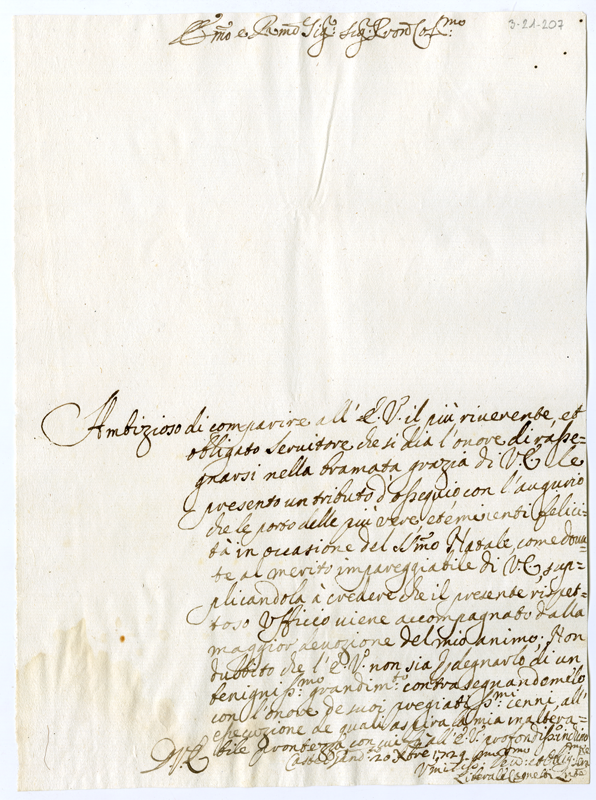 3-21-207
Emo e Rmo Sigr. Sigr. Pron Colmo
Ambizioso di comparire all' E. V. il più riuerente, et
obligato seruitore che si dia l'onore di rasse=
gnarsi nella bramata grazia di VE. le
presento un tributo d'ossequio con l'augurio
che le porto delle più vere, et eminenti felici=
tà in occasione del Smo Natale, come douu=
te al merito impareggiabile di VE, sup=
plicandola à credere che il presente rispet=
toso Vfficio viene accompagnato dalla
maggior deuozione del mio animo. Non
dubbito che l'E. V. non sia p. degnarlo di un
benigniss.mo grandim.to contrasegnandomelo
con l'onore de suoi pregiatiss.mi cenni, all'
esecuzione de quali aspira la mia inaltera=
bile prontezza con cui all' E. V. profondiss.te inchino
D. V. E.
20 Xbre 1724